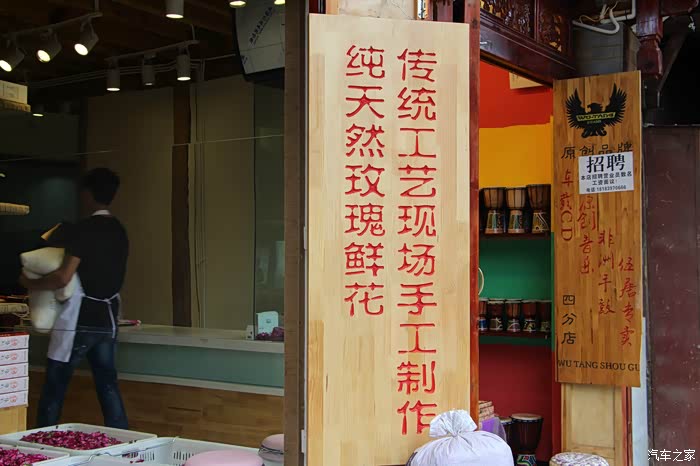 传统工艺现场手工制作
纯天然玫瑰鲜花
原创品牌
招聘
本店招聘营业员数名
工资面议:
车载CD
原创音乐
非洲手鼓
伍居专卖
四分店
WU TANG SHOU GU
汽车之家